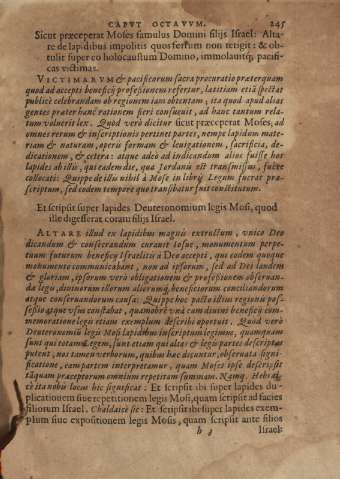 CAPVT OCTAVVM. 245
Sicut præceperat Moses famulus Domini filijs Israel: Alta-
re de lapidibus impolitis quos ferrum non tetigit: & ob-
tulit super eo holocaustum Domino, immolauitq́; pacifi-
cas victimas.
VICTIMARVM & pacificorum sacra procuratio præterquam
quod ad accepti beneficij professionem refertur, lætitiam etiā spectat
publicè celebrandam ob regionem iam obtentam: ita quod apud alias
gentes præter hanc rationem fieri consueuit, ad hanc tantum rela-
tum voluerit lex. Quod verò dicitur sicut præceperat Moses, ad
omnes rerum & inscriptionis pertinet partes, nempe lapidum mate-
riam & naturam, operis formam & leuigationem, sacrificia, de-
dicationem, & cetera: atque adeo ad indicandum alios fuisse hos
lapides ab illis, qui eadem die, qua Iordanis est transmissus, fuere
collocati: Quippe de illis nihil à Mose in libris Legum fuerat præ-
scriptum, sed eodem tempore quo transibatur fuit constitutum.
Et scripsit super lapides Deuteronomium legis Mosi, quod
ille digesserat coram filijs Israel.
ALTARE illud ex lapidibus magnis extructum, vnico Deo
dicandum & consecrandum curant Iosue, monumentum perpe-
tuum futurum beneficij Israelitis à Deo accepti, qui eodem quoque
monumento communicabant, non ad ipsorum, sed ad Dei laudem
& gloriam, ipsorum verò obligationem & professionem obseruan-
da legis, diuinorum illorum aliorumq́; beneficiorum conciliandorum
atque conseruandorum causa: Quippe hoc pacto illius regionis pos-
sessio atque vsus constabat, quamobrem vnà cum diuini beneficij com-
memoratione legis etiam exemplum describi oportuit. Quod verò
Deuteronomiū legis Mosi lapidibus inscriptum legimus, quamquam
sunt qui totam legem, sunt etiam qui alias legis partes descriptas
putent, nos tamen verborum, quibus hæc dicuntur, obseruata signi-
ficatione, eam partem interpretamur, quam Moses ipse descripsit
tāquam præceptorum omnium repetitam summam. Namq́; Hebrai-
cè ita nobis locus hic significat: Et scripsit ibi super lapides du-
plicationem siue repetitionem legis Mosi, quam scripsit ad facies
filiorum Israel. Chaldaicè sic: Et scripsit ibi super lapides exem-
plum siue expositionem legis Mosis, quam scripsit ante filios
h 3 Israel: